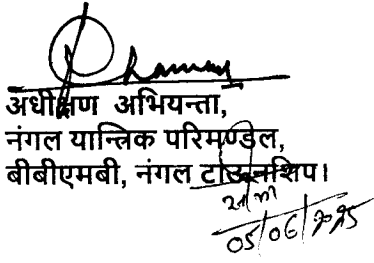 अधीक्षण अभियन्ता,
नंगल यान्त्रिक परिमण्डल,
बीबीएमबी, नंगल टाऊनशिप।
05/06/2025